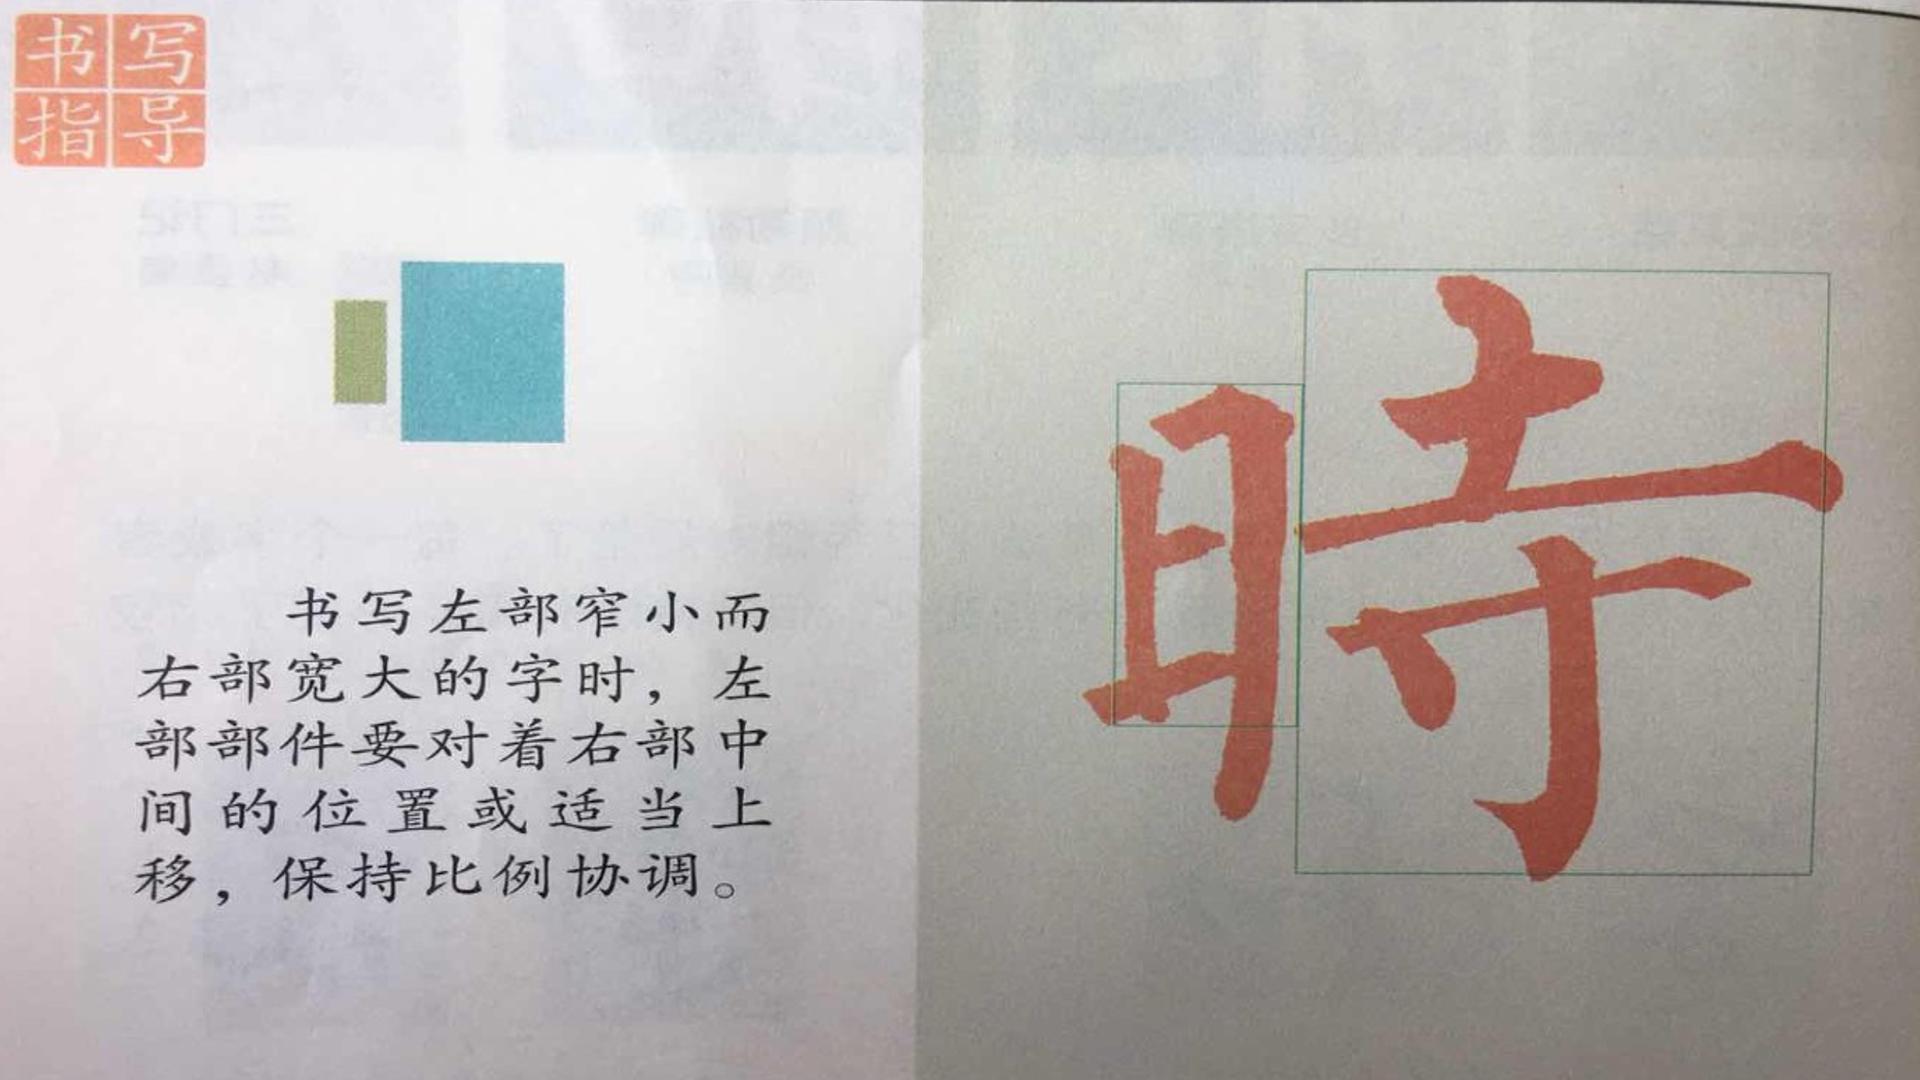 书写
指导
书写左部窄小而
右部宽大的字时，左
部部件要对着右部中
间的位置或适当上
移，保持比例协调。
時